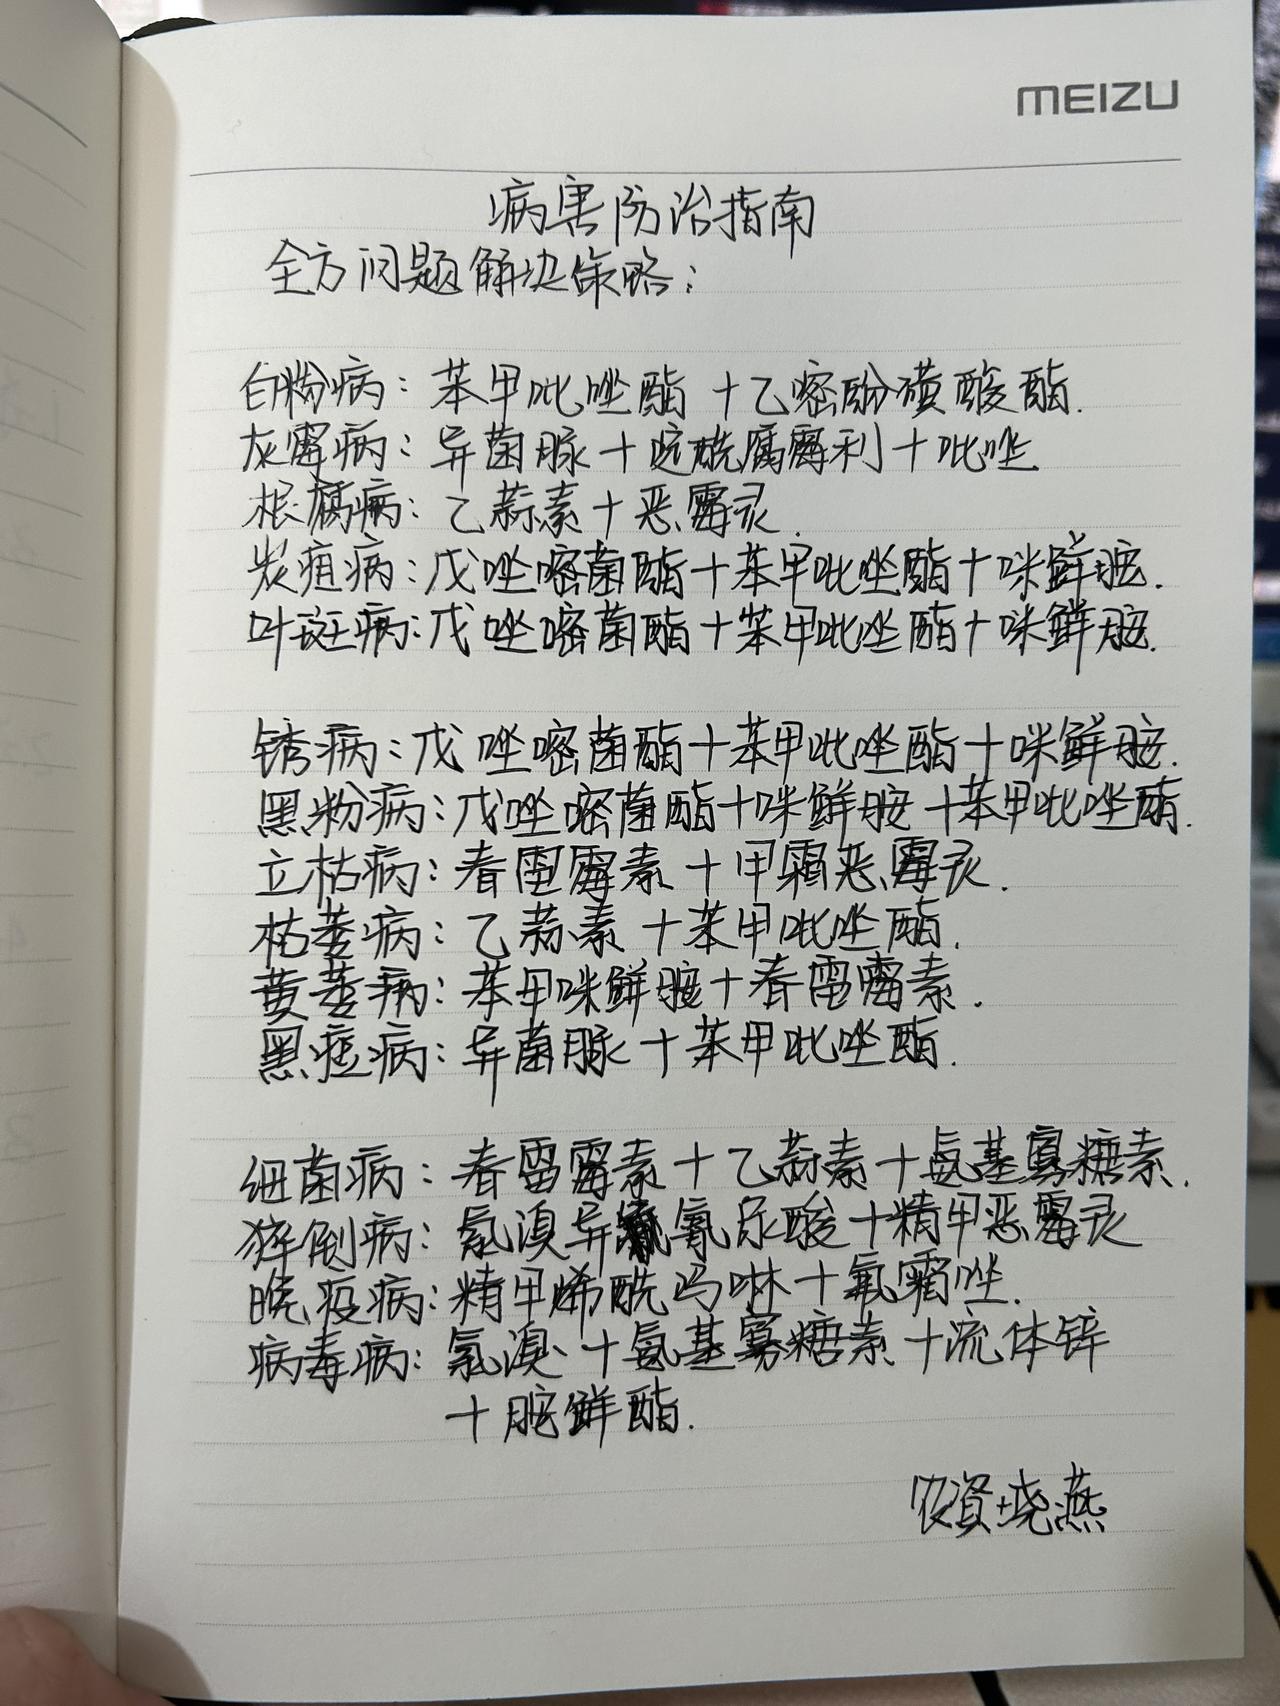 MEIZU
病害防治指南
全方问题解决策略：
白粉病：苯甲吡唑酯+乙嘧酚磺酸酯.
灰霉病：异菌脲+啶酰腐霉利+吡唑
根腐病：乙蒜素+恶霉灵.
炭疽病：戊唑嘧菌酯+苯甲吡唑酯+咪鲜胺.
叶斑病：戊唑嘧菌酯+苯甲吡唑酯+咪鲜胺.
锈病：戊唑嘧菌酯+苯甲吡唑酯+咪鲜胺.
黑粉病：戊唑嘧菌酯+咪鲜胺+苯甲吡唑酯.
立枯病：春雷霉素+甲霜恶霉灵.
枯萎病：乙蒜素+苯甲吡唑酯.
黄萎病：苯甲咪鲜胺+春雷霉素.
黑痘病：异菌脲+苯甲吡唑酯.
细菌病：春雷霉素+乙蒜素+氨基寡糖素.
猝倒病：氯溴异氰尿酸+精甲恶霉灵
晚疫病：精甲烯酰吗啉+氟霜唑.
病毒病：氯溴+氨基寡糖素+流体锌
+胺鲜酯.
农资+晓燕